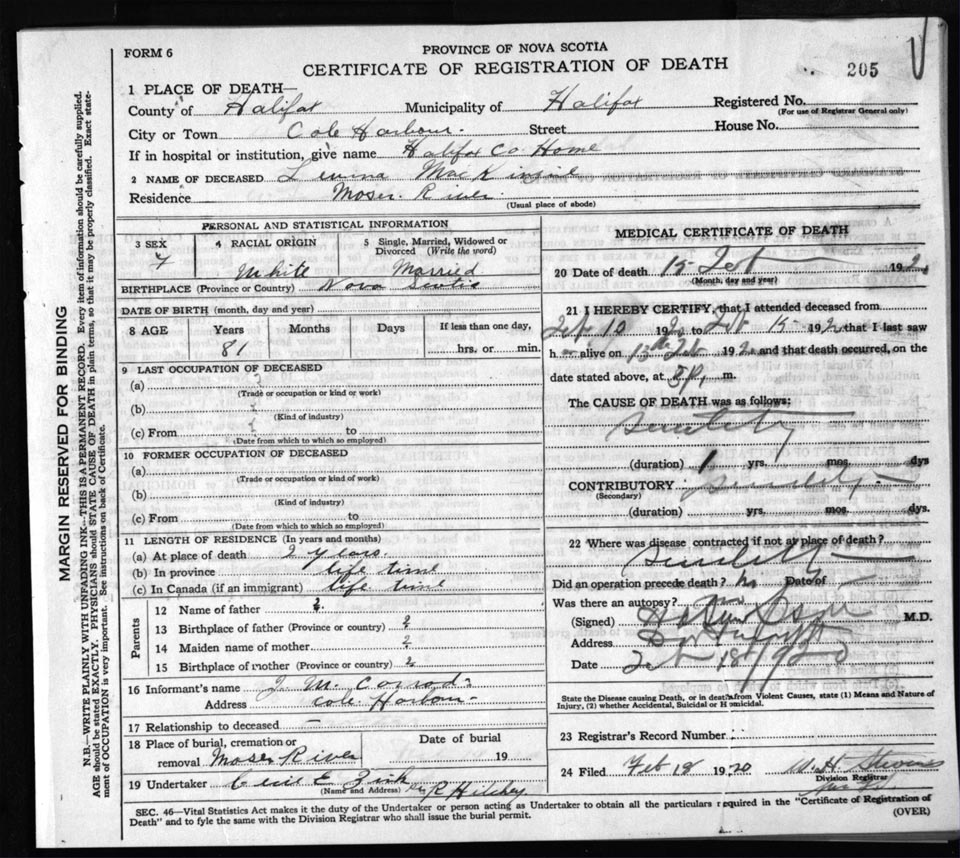 FORM 6
PROVINCE OF NOVA SCOTIA
CERTIFICATE OF REGISTRATION OF DEATH
205
1 PLACE OF DEATH—
County of Halifax Municipality of Halifax Registered No.
(For use of Registrar General only)
City or Town Cole Harbour. Street House No.
If in hospital or institution, give name Halifax Co. Home
2 NAME OF DECEASED Levina
Residence Moser River
(Usual place of abode)
PERSONAL AND STATISTICAL INFORMATION
3 SEX 4 RACIAL ORIGIN 5 Single, Married, Widowed or Divorced (Write the word)
F White Married
BIRTHPLACE (Province or Country) Nova Scotia
DATE OF BIRTH (month, day and year)
8 AGE Years Months Days If less than one day,
81 hrs. or min.
9 LAST OCCUPATION OF DECEASED
(a) ?
(Trade or occupation or kind or work)
(b) ?
(Kind of industry)
(c) From ? to
(Date from which to which so employed)
10 FORMER OCCUPATION OF DECEASED
(a)
(Trade or occupation or kind or work)
(b)
(Kind of industry)
(c) From to
(Date from which to which so employed)
11 LENGTH OF RESIDENCE (In years and months)
(a) At place of death 2 years.
(b) In province life time
(c) In Canada (if an immigrant) life time
Parents
12 Name of father ?
13 Birthplace of father (Province or country) ?
14 Maiden name of mother ?
15 Birthplace of mother (Province or country) ?
16 Informant's name J. M. Conrod
Address Cole Harbour
17 Relationship to deceased —
18 Place of burial, cremation or removal Moser River Date of burial 19
19 Undertaker Cecil E. Zink
(Name and Address) R Hilchey
MEDICAL CERTIFICATE OF DEATH
20 Date of death 15 Feb 192
(Month, day and year)
21 I HEREBY CERTIFY, that I attended deceased from
192 to Feb 15 192 that I last saw
h alive on 13th Feb 192 and that death occurred, on the
date stated above, at m.
The CAUSE OF DEATH was as follows:
Senility
(duration) 1 yrs. mos. dys
CONTRIBUTORY Senility
(Secondary)
(duration) yrs. mos. dys.
22 Where was disease contracted if not at place of death?
Senility
Did an operation precede death? no Date of
Was there an autopsy? no
(Signed) M.D.
Address
Date Feb 18th 1920
State the Disease causing Death, or in deaths from Violent Causes, state (1) Means and Nature of
Injury, (2) whether Accidental, Suicidal or Homicidal.
23 Registrar's Record Number
24 Filed Feb 18 1920 W. H. Stevens
Division Registrar
SEC. 46—Vital Statistics Act makes it the duty of the Undertaker or person acting as Undertaker to obtain all the particulars required in the "Certificate of Registration of
Death" and to fyle the same with the Division Registrar who shall issue the burial permit.
(OVER)
MARGIN RESERVED FOR BINDING
N.B.—WRITE PLAINLY WITH UNFADING INK—THIS IS A PERMANENT RECORD. Every item of information should be carefully supplied.
AGE should be stated EXACTLY. PHYSICIANS should STATE CAUSE OF DEATH in plain terms, so that it may be properly classified. Exact state-
ment of OCCUPATION is very important. See instructions on back of Certificate.